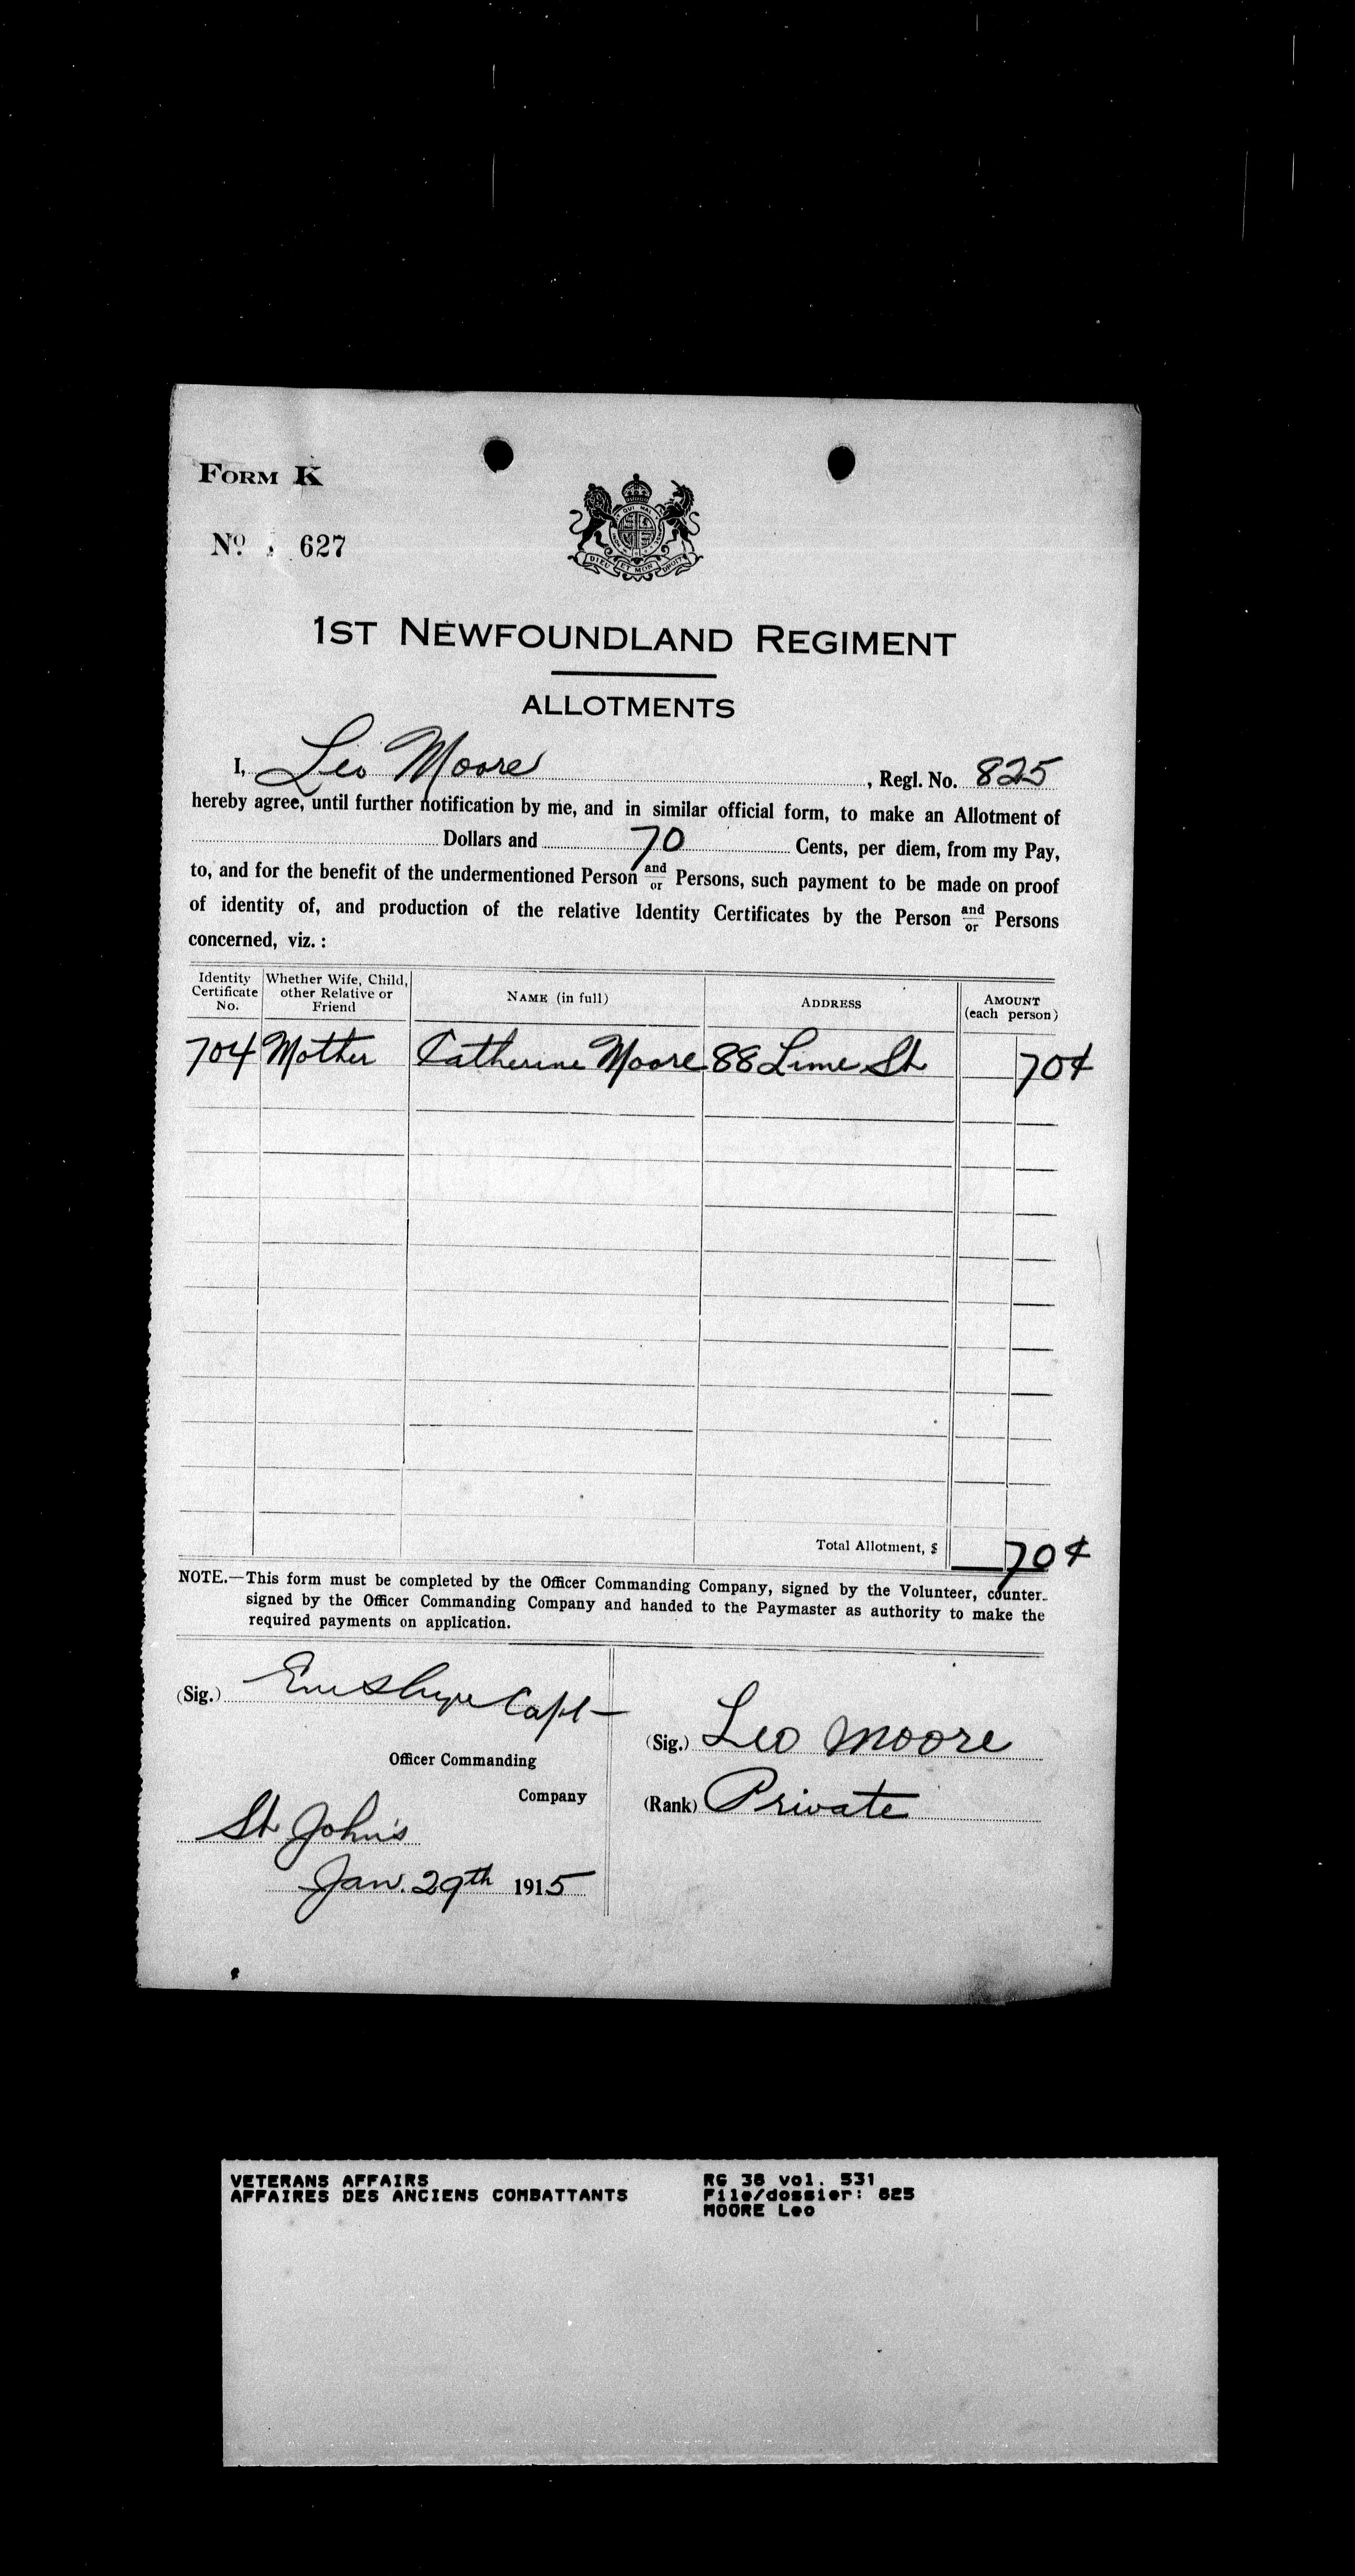 FORM K
No. 627
DIEU ET MON DROIT
1ST NEWFOUNDLAND REGIMENT
ALLOTMENTS
I, Leo Moore, Regl. No. 825
hereby agree, until further notification by me, and in similar official form, to make an Allotment of
Dollars and 70 Cents, per diem, from my Pay,
to, and for the benefit of the undermentioned Person and/or Persons, such payment to be made on proof
of identity of, and production of the relative Identity Certificates by the Person and/or Persons
concerned, viz.:
Identity Certificate No. Whether Wife, Child, other Relative or Friend NAME (in full) ADDRESS AMOUNT (each person)
704 Mother Catherine Moore 88 Lime St 70¢
Total Allotment, $ 70¢
NOTE.—This form must be completed by the Officer Commanding Company, signed by the Volunteer, counter-
signed by the Officer Commanding Company and handed to the Paymaster as authority to make the
required payments on application.
(Sig.) Capt
Officer Commanding
Company
St John's
Jan. 29th 1915
(Sig.) Leo Moore
(Rank) Private
VETERANS AFFAIRS RG 38 vol. 531
AFFAIRES DES ANCIENS COMBATTANTS File/dossier: 825
MOORE Leo